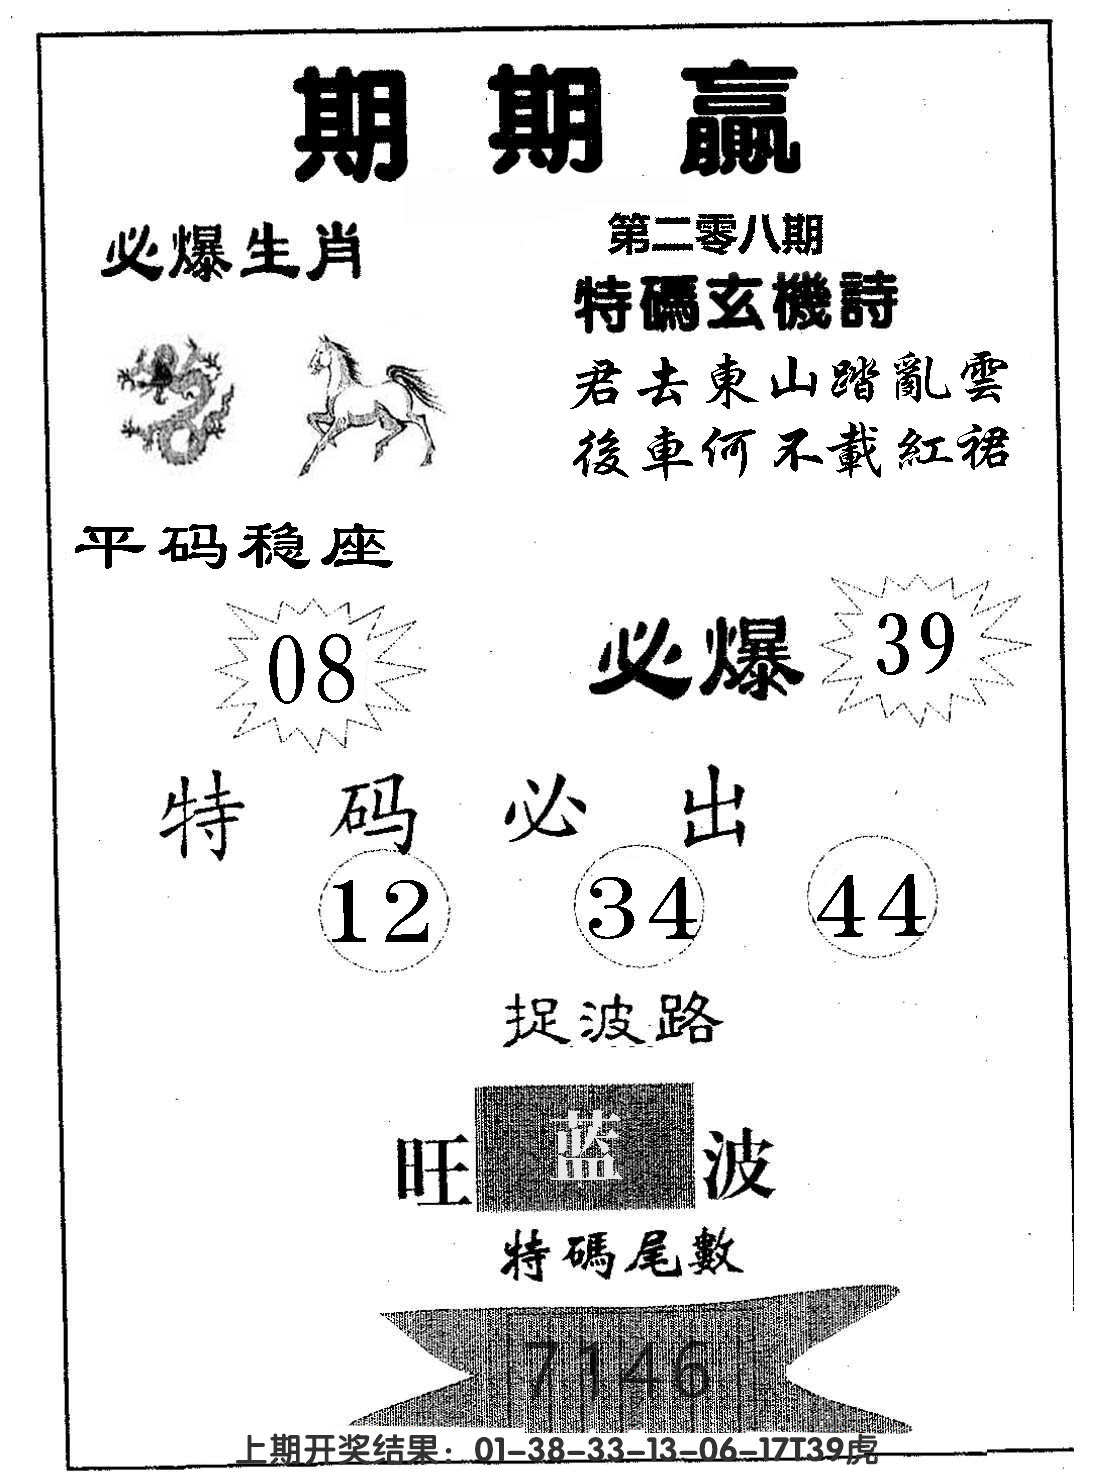 期期赢
必爆生肖
第二零八期
特碼玄機詩
君去東山踏亂雲
後車何不載紅裙
平码稳座
08
必爆
39
特码必出
12 34 44
捉波路
旺蓝波
特碼尾數
7146
上期开奖结果：01-38-33-13-06-17T39虎